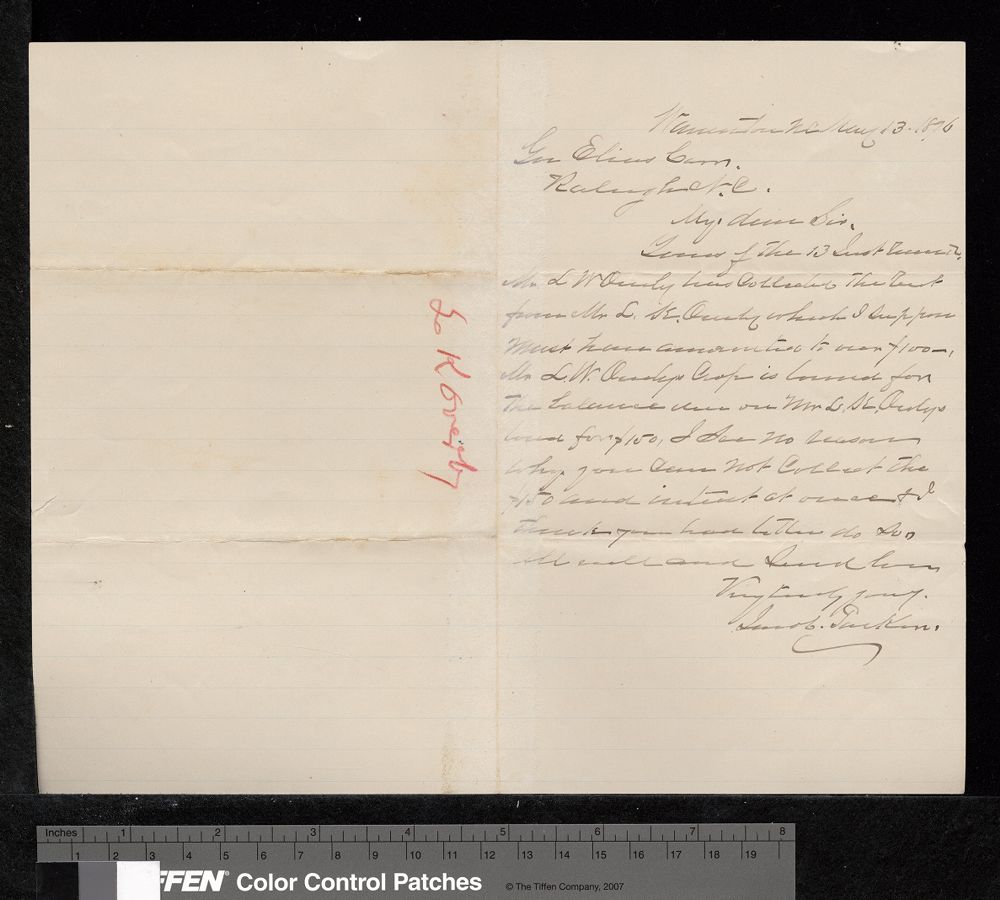 Warrenton NC May 13 - 1896
Gov Elias Carr.
Raleigh N.C.
My dear Sir.
Yours of the 13 Inst
Mr. L W Overby has Collected the Rent
from Mr L. K. Overby which I suppose
Must have amounted to over $100-,
Mr. L. W. Overbys Crop is bound for
the balance due on Mr L. K. Overbys
for $150, I See no reason
why you Can Not Collect the
$150 and interest at once & I
think you had better do So,
All well and Send love
Very truly yours.
Jacob. Parker.
L. K Overby
Inches 1 2 3 4 5 6 7 8
1 2 3 4 5 6 7 8 9 10 11 12 13 14 15 16 17 18 19
FFEN® Color Control Patches © The Tiffen Company, 2007